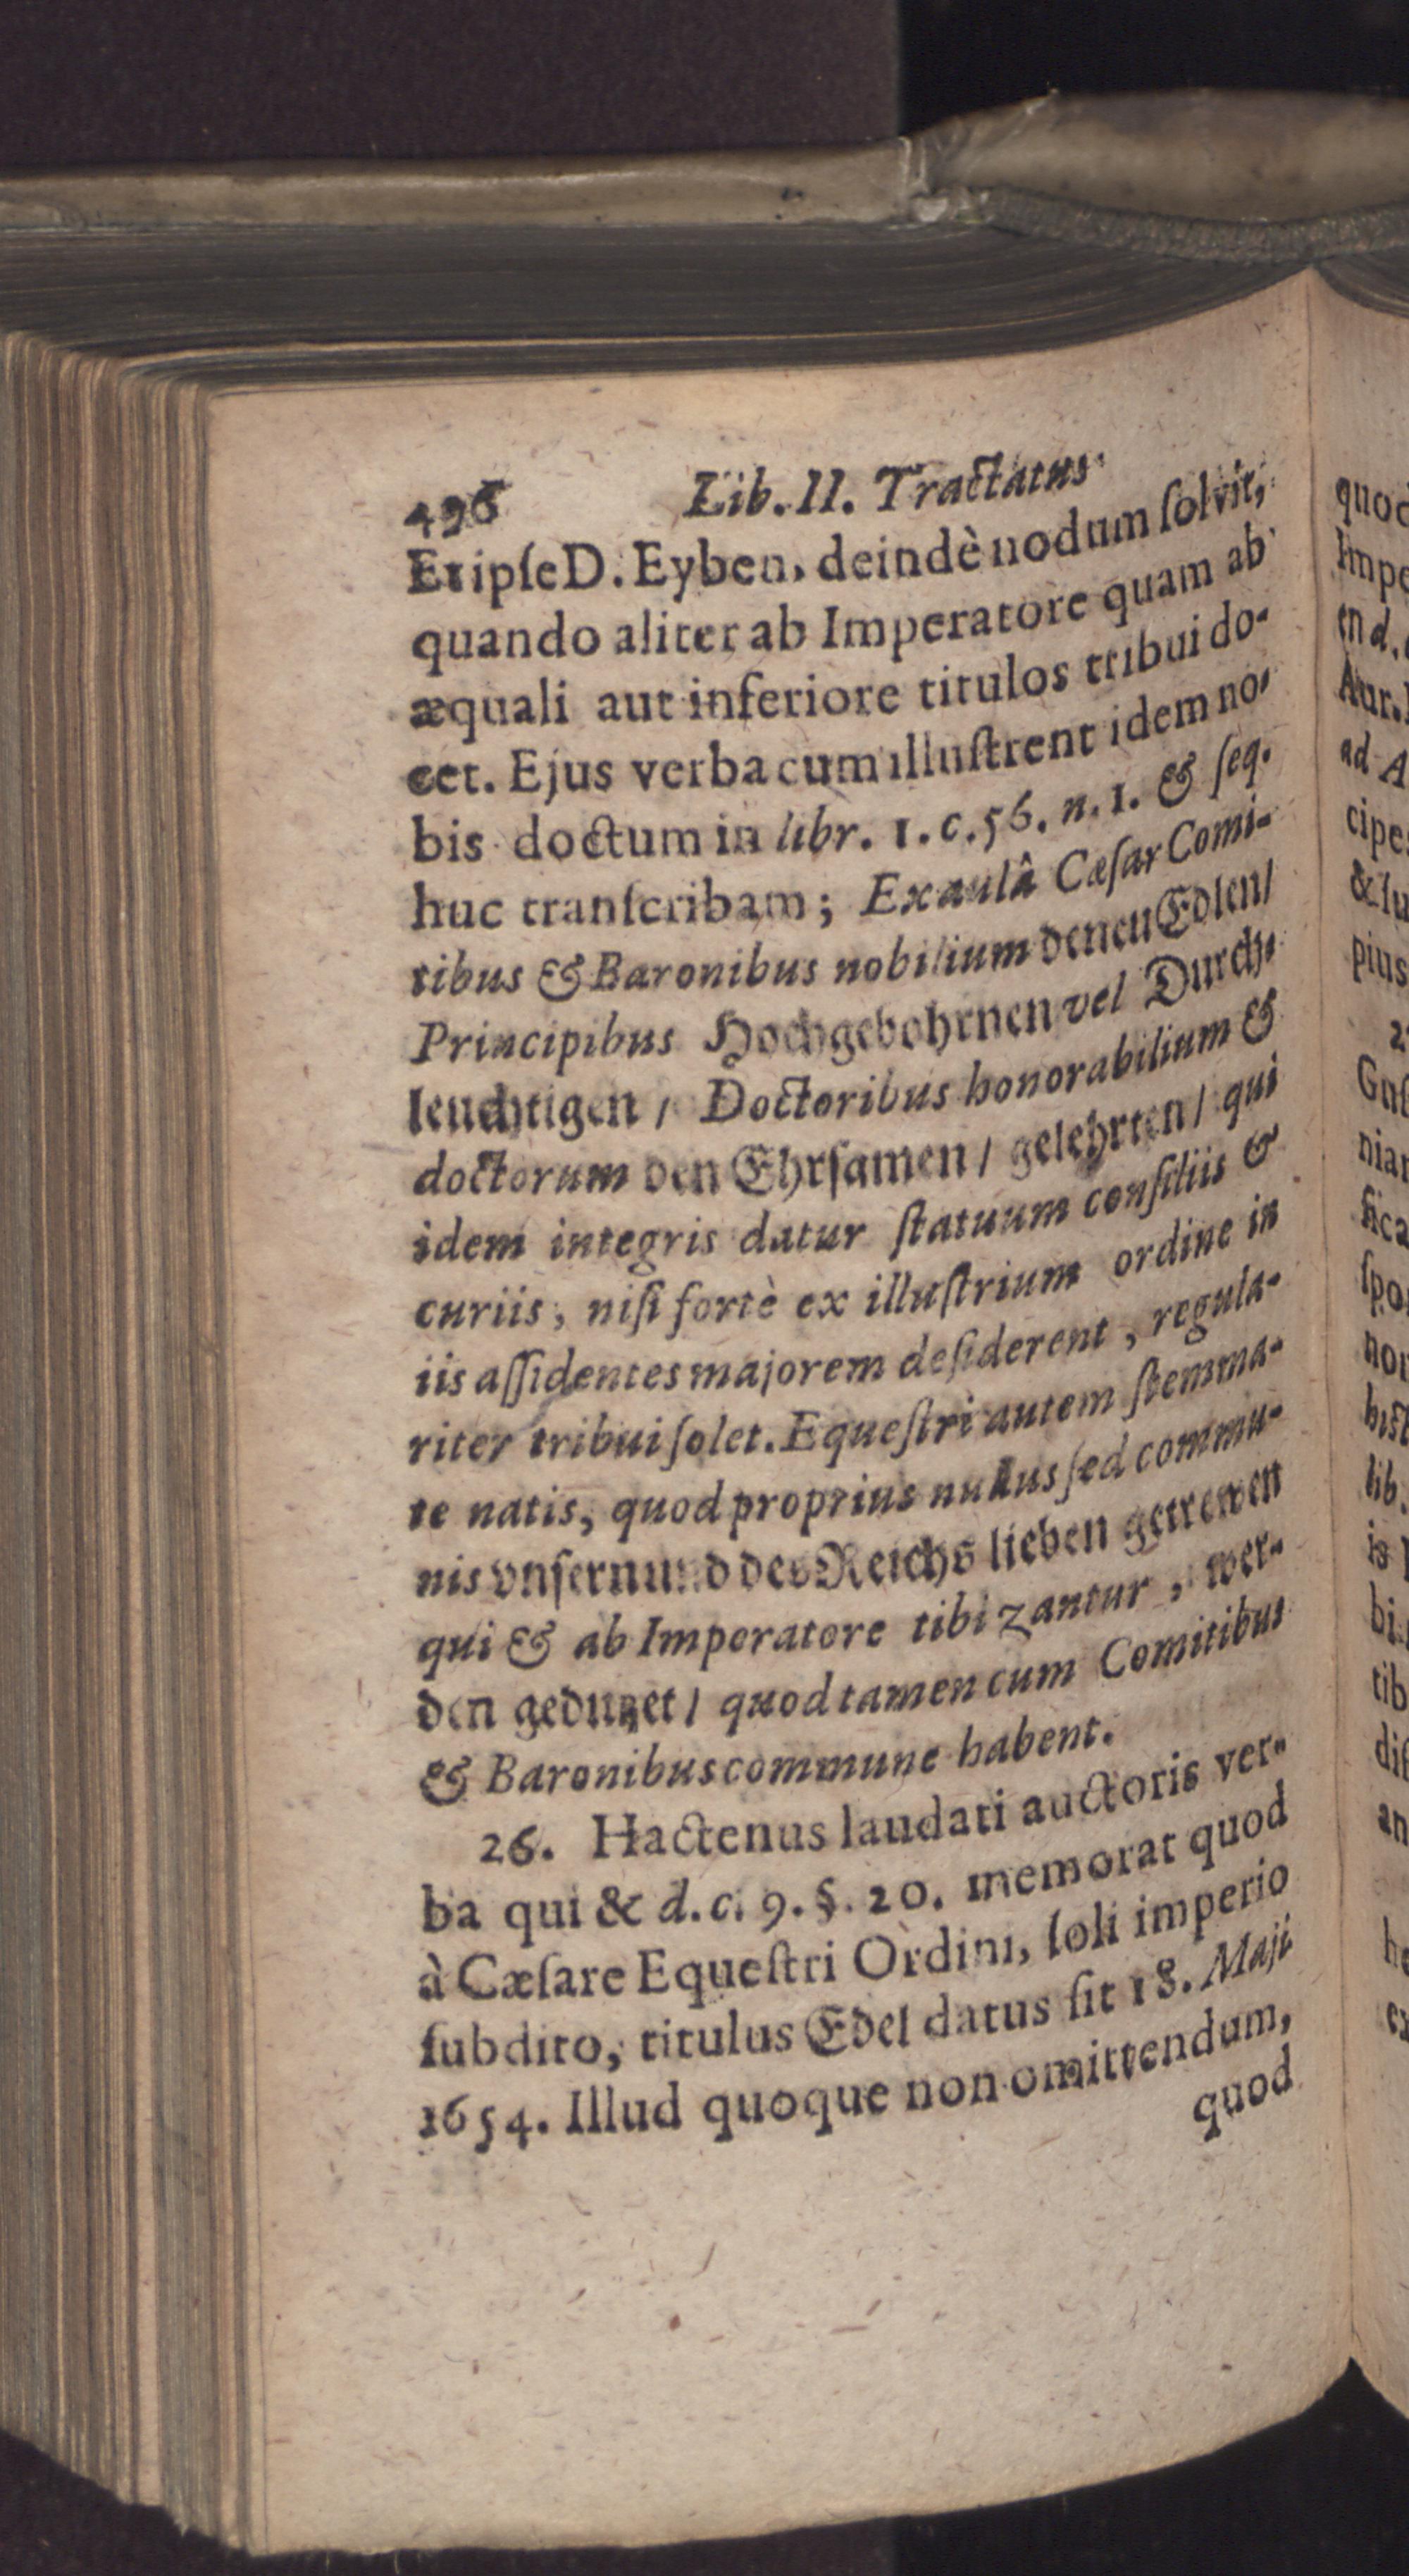 496 Lib. II. Tractatus
Et ipſe D. Eyben, deindè nodum ſolvit,
quando aliter ab Imperatore quam ab
æquali aut inferiore titulos tribui do-
cet. Ejus verba cum illuſtrent idem no-
bis doctum in libr. 1. c. 56. n. 1. & ſeq.
huc tranſcribam; Ex aulâ Cæſar Comi-
tibus & Baronibus nobilium denen Edlen/
Principibus Hochgebohrnen vel Durch-
leuchtigen / Doctoribus honorabilium &
doctorum den Ehrſamen / gelehrten / qui
idem integris datur ſtatuum conſiliis &
curiis, niſi fortè ex illuſtrium ordine in
iis aſſidentes majorem deſiderent, regula-
riter tribui ſolet. Equeſtri autem ſtemma-
te natis, quod proprius nullus ſed commu-
nis vnſern und des Reichs lieben getrewen
qui & ab Imperatore tibizantur, wer-
den geduzet / quod tamen cum Comitibus
& Baronibus commune habent.
26. Hactenus laudati auctoris ver-
ba qui & d. c. 9. §. 20. memorat quod
à Cæſare Equeſtri Ordini, ſoli imperio
ſubdito, titulus Edel datus ſit 18. Maji
1654. Illud quoque non omittendum,
quod
quod
Impe
en d.
Aur.
ad A
cipe
pius
2
Guſ
nia
fica
ſpo
non
hiſt
lib.
is
bi
tib
diſ
an